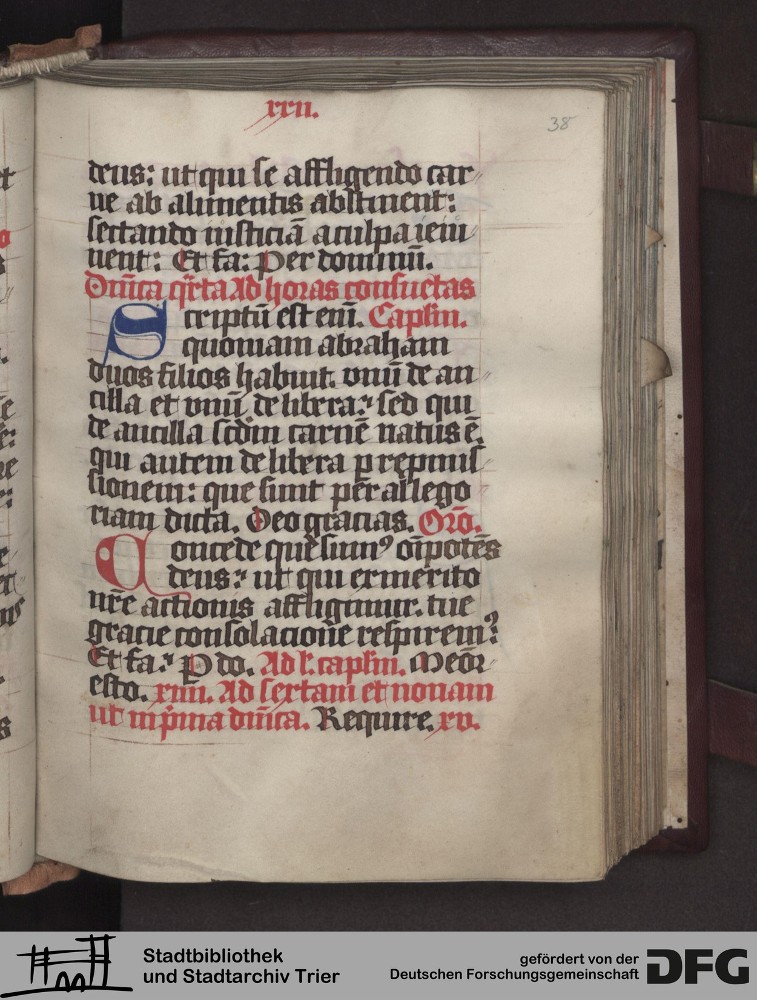 xxii.
38
deus: ut qui se affligendo car
ne ab alimentis abstinent:
sectando iusticiā a culpa ieiu
nent: Et fa: Per dominū.
Dn̄ica qr̄ta Ad horas consuetas
Scriptū est eni. Caplm.
quoniam abraham
duos filios habuit. vnū de an
cilla et vnū de libera: sed qui
de ancilla scdm carnē natus ē.
qui autem de libera p repmis
sionem: que sunt per allego
riam dicta. Deo gracias. Oro.
Concede quesum⁹ oīpotēs
deus: ut qui ex merito
nr̄e actionis affligimur. tue
gracie consolacione respirem⁹:
Et fa: P do. Ad .caplm. Meor
esto. xiiii. Ad sextam et nonam
ut in pma dn̄ica. Require. xv.
Stadtbibliothek
und Stadtarchiv Trier
gefördert von der
Deutschen Forschungsgemeinschaft
DFG